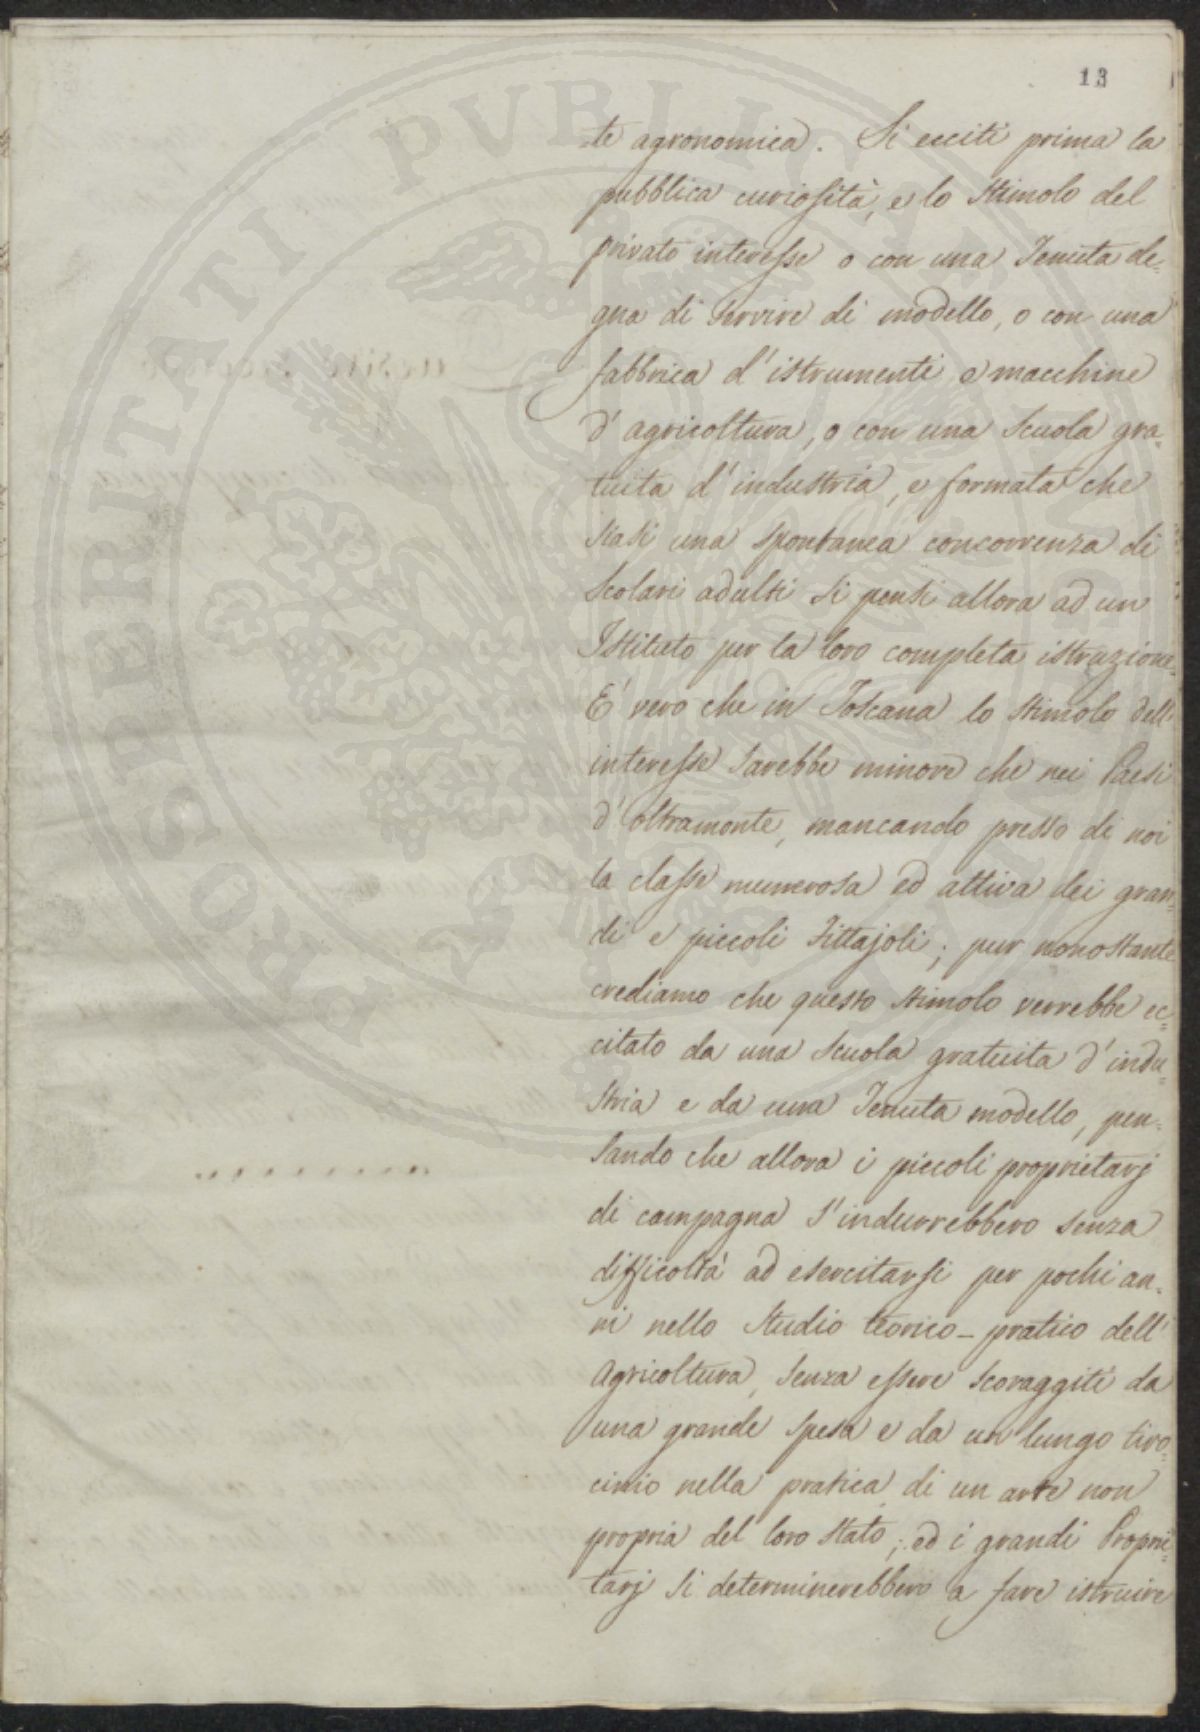 13
te agronomica. Si ecciti prima la
pubblica curiosità, e lo stimolo del
privato interesse o con una Tenuta de=
gna di servire di modello, o con una
fabbrica d'istrumenti e macchine
d'agricoltura, o con una Scuola gra=
tuita d'industria, e formata che
siasi una spontanea concorrenza di
Scolari adulti si pensi allora ad un
Istituto per la loro completa istruzione.
E' vero che in Toscana lo stimolo dell'
interesse sarebbe minore che nei Paesi
d'oltramonte, mancando presso di noi
la classe numerosa ed attiva dei gran=
di e piccoli Fittajoli; pur nonostante
crediamo che questo stimolo verrebbe ec=
citato da una Scuola gratuita d'indu=
stria e da una Tenuta modello, pen=
sando che allora i piccoli proprietarj
di campagna s'indurrebbero senza
difficoltà ad esercitarsi per pochi an=
ni nello studio teorico-pratico dell'
Agricoltura, senza essere scoraggiti da
una grande spesa e da un lungo tiro=
cinio nella pratica di un arte non
propria del loro stato; ed i grandi Proprie=
tarj si determinerebbero a fare istruire
PROSPERITATI PVBLICAE